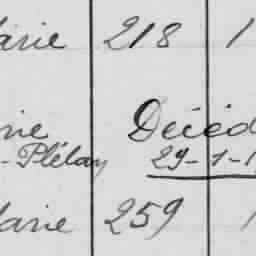 arie 218 1
rie Décéd
- Plélan 29-1-1
arie 259 1